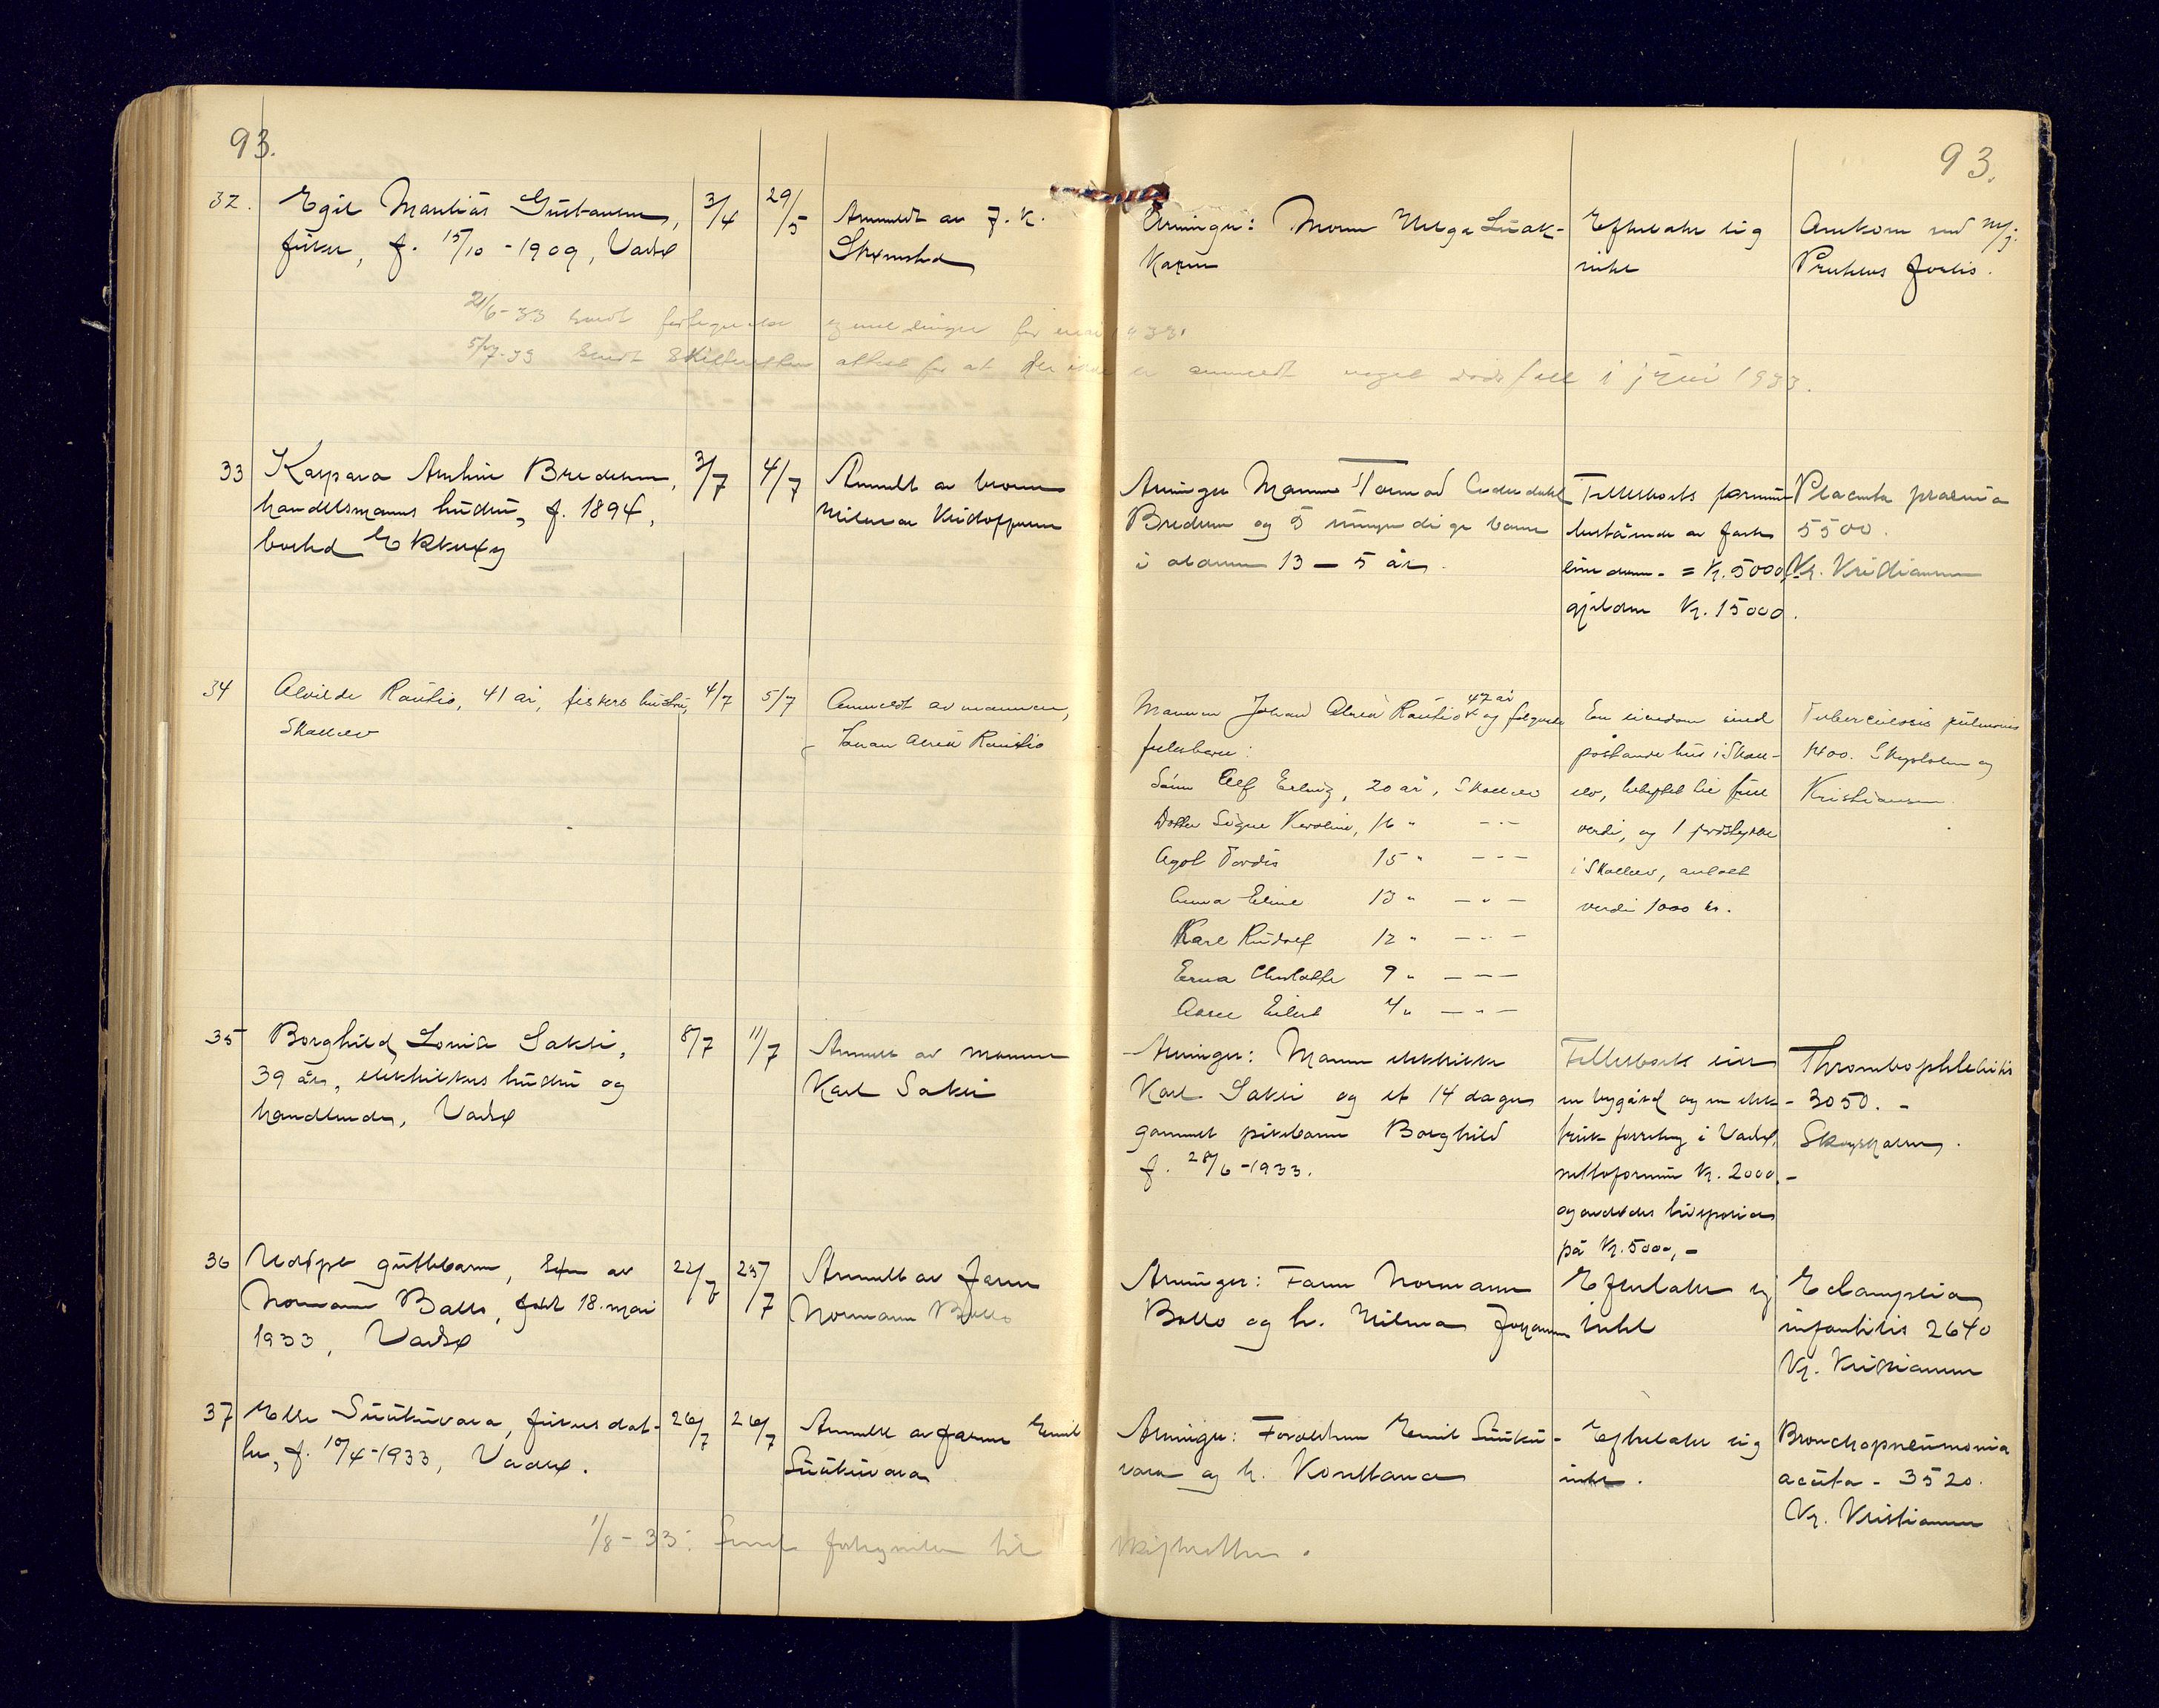 93.
93.
32.
Egil Mantiås Gustavsen,
fisker, f. 15/10 - 1909, Vadsø
3/4
29/5
Anmeldt av J. K.
Arvinger: Moren Helga
Karen
Efterlater sig
intet
Omkom med M/J.
21/6-33 sendt fortegnelse for mai 1933.
5/7.33 sendt Skifteretten attest for at der ikke er anmeldt noget dødsfall i juni 1933.
33
Kaspara Bredesen,
handelsmanns hustru, f. 1894,
bosted Ekkerøy
3/7
4/7
Anmeldt av broren
Hilmar Kristoffersen
Arvinger Mannen Tormod
Bredesen og 5 umyndige barn
i alderen 13 - 5 år.
Fellesboets formue
bestående av fast
eiendom = Kr. 5000,-
gjelden Kr. 15000.
Placenta praevia
5500.
Kr. Kristiansen
34
Alvilde Rautio, 41 år, fiskers hustru,
Skallelv
4/7
5/7
Anmeldt av mannen,
Johan Alfred Rautio
Mannen Johan Alfred Rautio 47 år og følgende
fellesbarn:
Sønn Alf Erling, 20 år, Skallelv
Datter Signe Karoline, 16 " - " -
Agot Tordis 15 " - " -
Anna Eline 13 " - " -
Karl Rudolf 12 " - " -
Erna Charlotte 9 " - " -
Eilert 4 " - " -
En eiendom med
påstående hus i Skall-
elv, beheftet til full
verdi, og 1 jordstykke
i Skallelv, antatt
verdi 1000 kr.
Tuberculosis pulmonis
1400. Skogsholm og
Kristiansen
35
Borghild Lovise Sakki,
39 år, elektrikers hustru og
handlende, Vadsø
8/7
11/7
Anmeldt av mannen
Karl Sakki
Arvinger: Mannen elektriker
Karl Sakki og et 14 dager
gammelt pikebarn Borghild
f. 28/6-1933.
Fellesboets eier
en bygård og en elek-
trisk forretning i Vadsø,
nettoformue Kr. 2000.-
og avdødes livspolice
på Kr. 5000,-
Thrombophlebitis
3050. -
Skogsholm.
36
Udøpt guttebarn, sønn av
Normann Ballo, født 18. mai
1933, Vadsø
22/7
25/7
Anmeldt av faren
Normann Ballo
Arvinger: Faren Normann
Ballo og h. Hilma
Efterlater sig
intet
Eclampsia
infantilis 2640
Kr. Kristiansen
37
Elle Suukivara, fiskers dat-
ter, f. 10/4-1933, Vadsø.
26/7
26/7
Anmeldt av faren Emil
Suukivara
Arvinger: Foreldrene Emil Suuki-
vara og h. Konstance
Efterlater sig
intet.
Bronchopneumonia
acuta - 3520.
Kr. Kristiansen
1/8-33: Sendt fortegnelse til skifteretten.